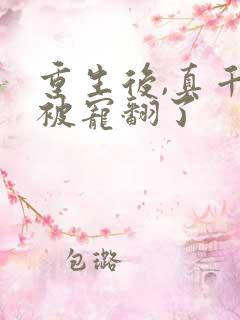 重生後,真千
被寵翻了
包璐